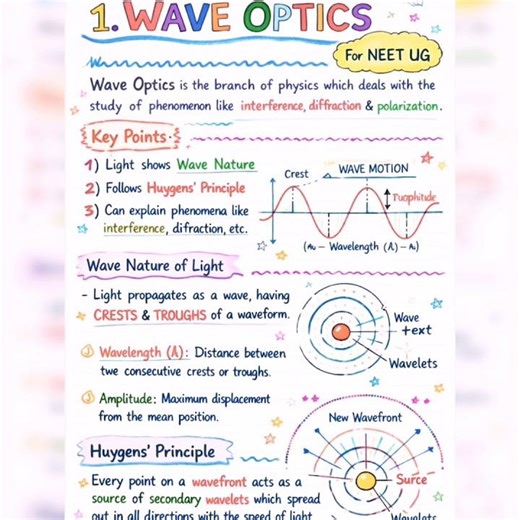 1. WAVE OPTICS
For NEET UG
Wave Optics is the branch of physics which deals with the
study of phenomenon like interference, diffraction & polarization.
Key Points:
1) Light shows Wave Nature
2) Follows Huygens' Principle
3) Can explain phenomena like
interference, difraction, etc.
Crest
WAVE MOTION
Tuophitude
Wavelength (A)
Wave Nature of Light
- Light propagates as a wave, having
CRESTS & TROUGHS of a waveform.
Wavelength (A): Distance between
two consecutive crests or troughs.
Amplitude: Maximum displacement
from the mean position.
Wave
+ext
Wavelets
Huygens' Principle
Every point on a wavefront acts as a
source of secondary wavelets which spread
out in all directions with the speed of light
New Wavefront
Surce
Wavelets